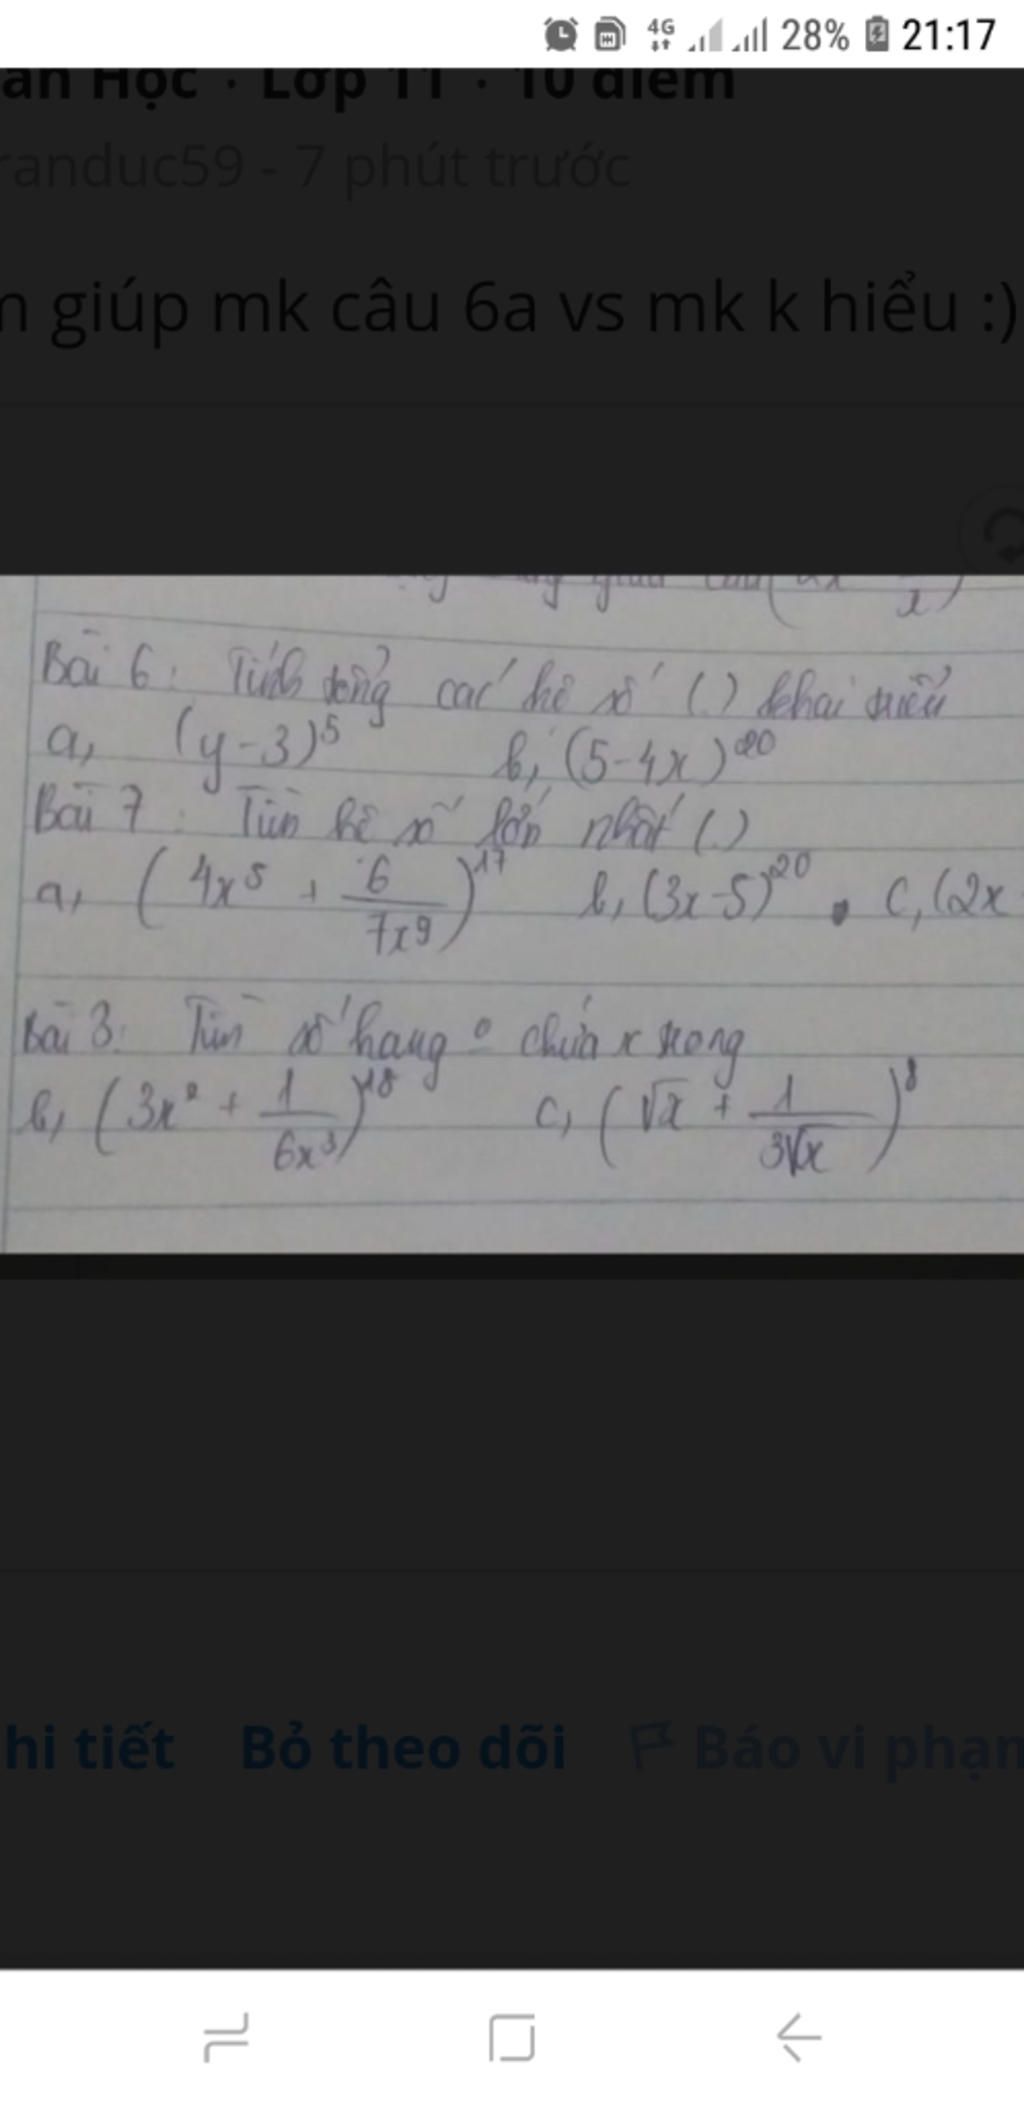 4G 28% 21:17
Học · Lớp 11 · 10 điểm
randuc59 - 7 phút trước
giúp mk câu 6a vs mk k hiểu :)
Bài 6: Tính tổng các hệ số (.) khai triển
a, (y-3)^5 b, (5-4x)^20
Bài 7: Tìm hệ số lớn nhất (.)
a, (4x^5 + 6/7x^9)^17 b, (3x-5)^20 . C, (2x
Bài 3: Tìm số hạng o chứa x trong
b, (3x^2 + 1/6x^3)^18 C, (√x + 1/3√x)^8
hi tiết Bỏ theo dõi Báo vi phạm